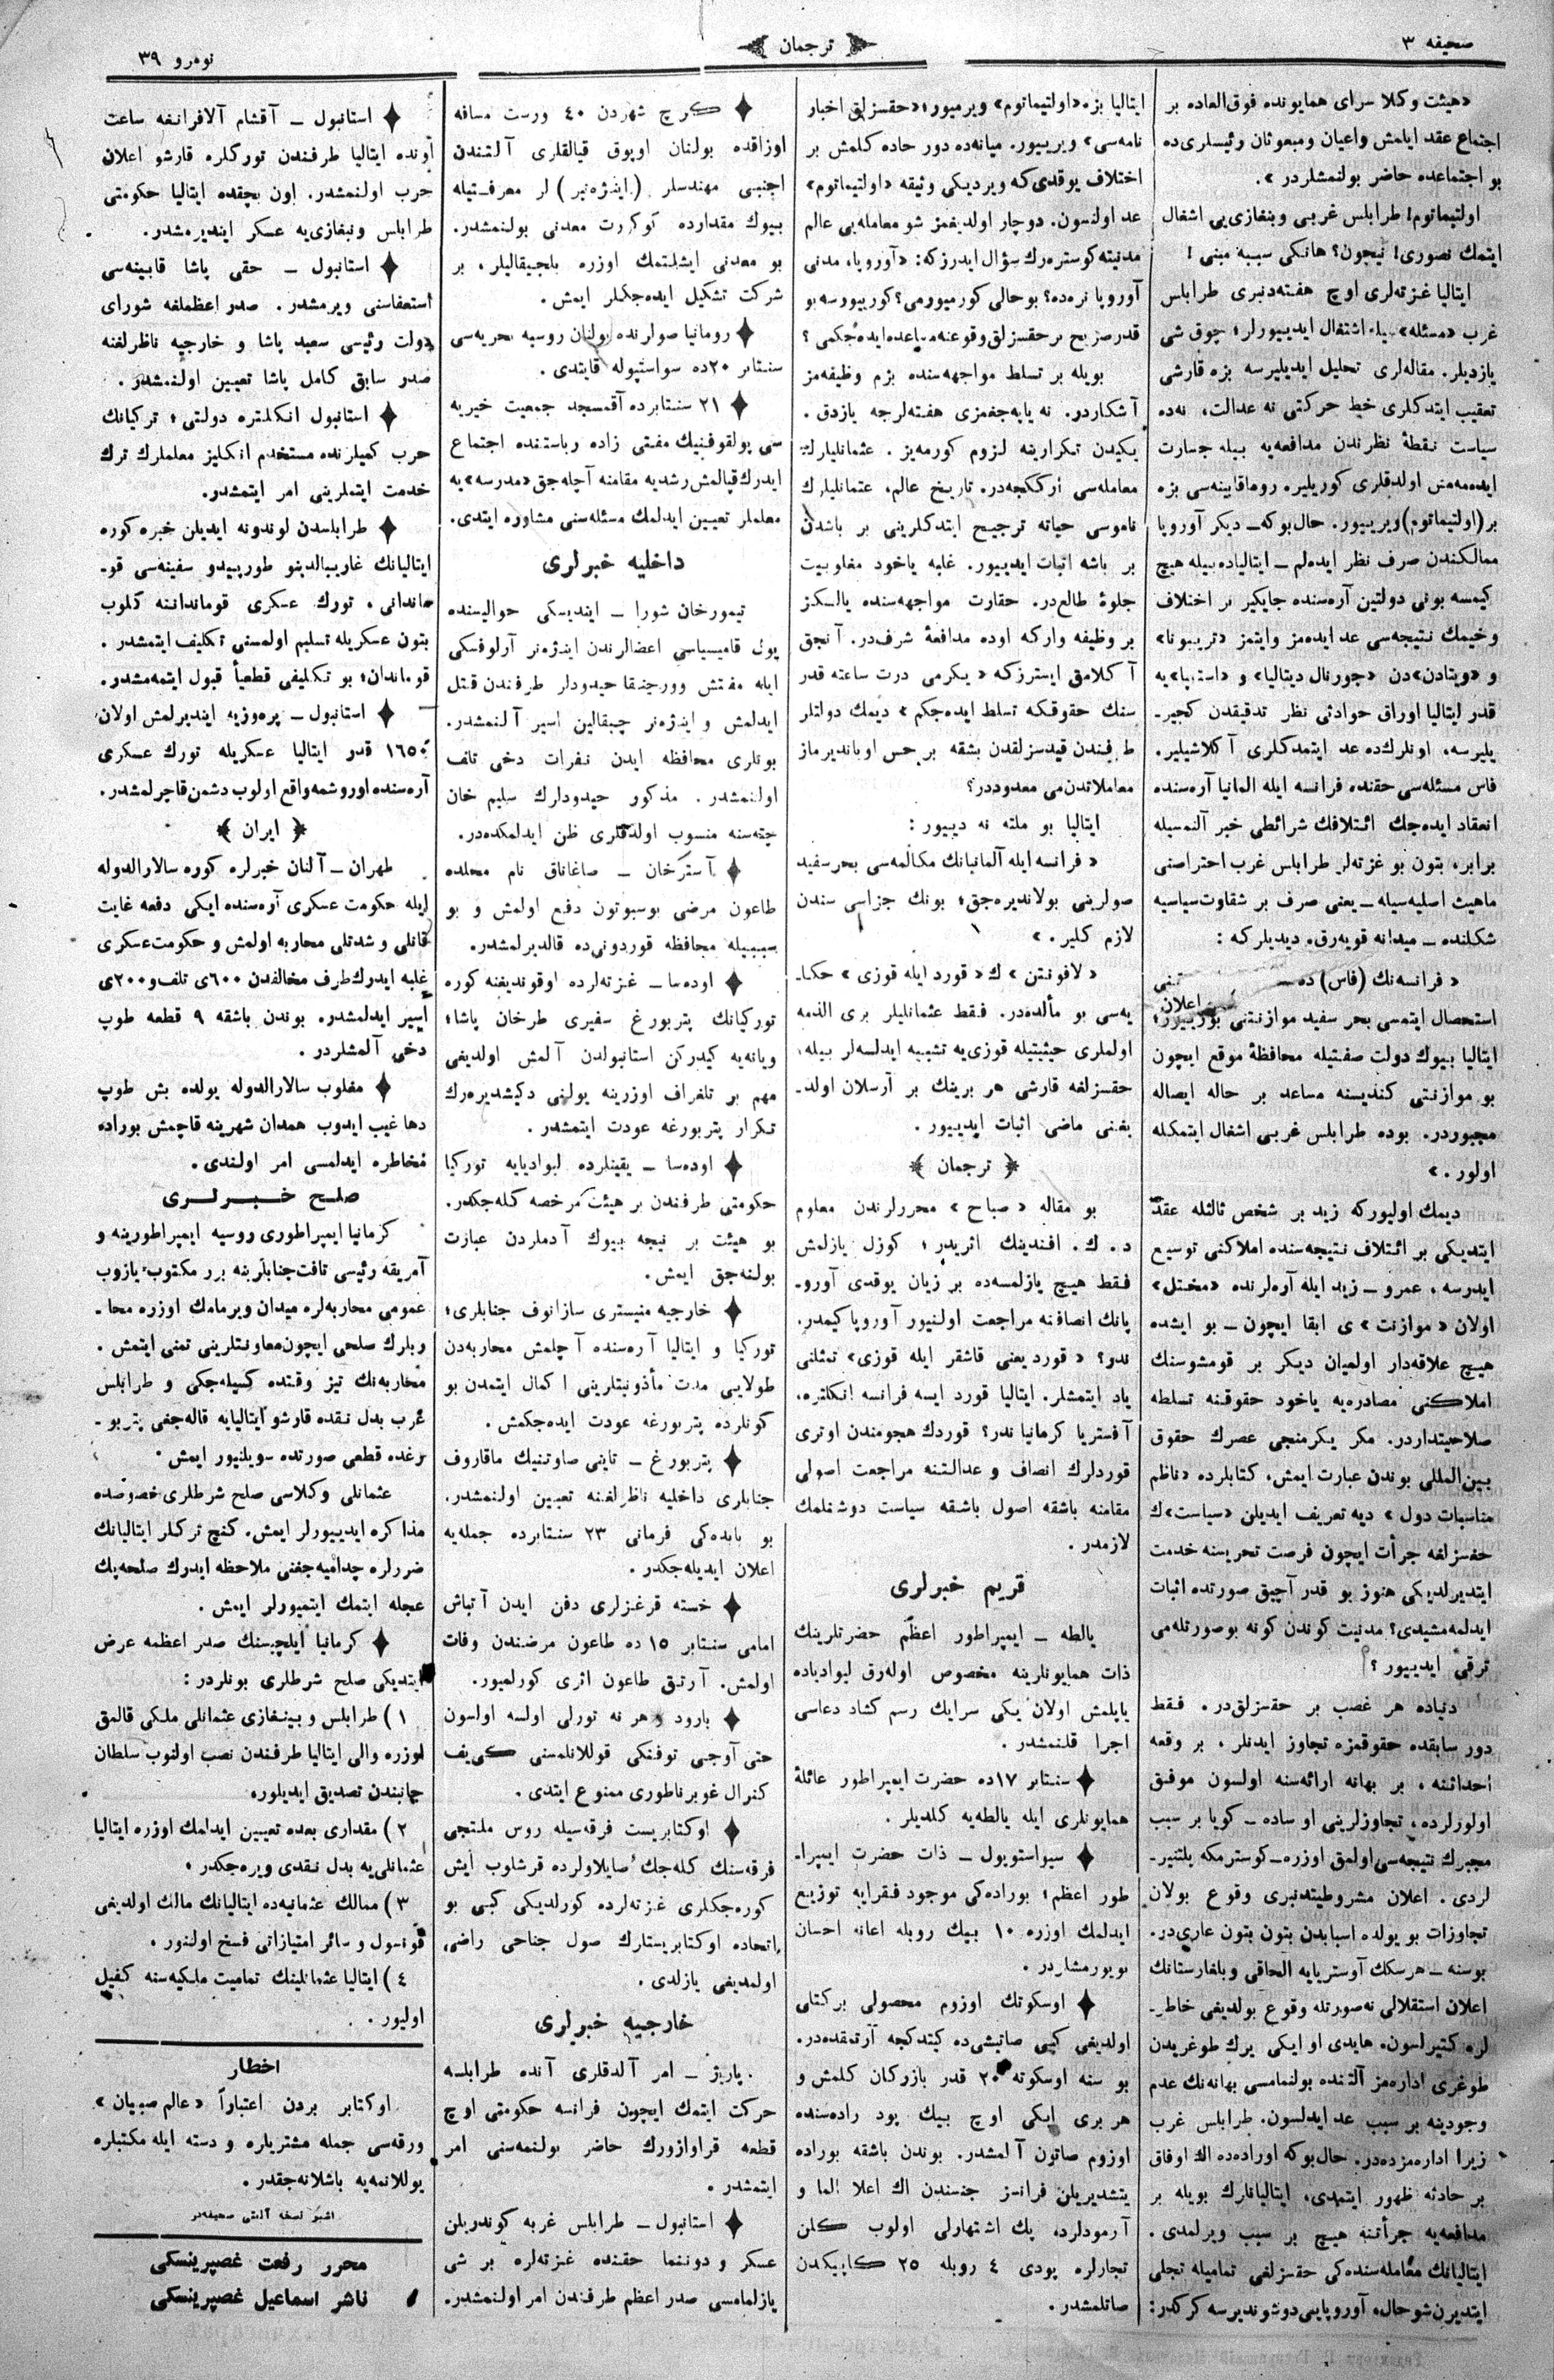 صحیفه ۳
ترجمان
نومرو ۳۹
«هیئت وکلا سرای همایونده فوق‌العاده بر
اجتماع عقد ایلمش واعیان ومبعوثان رئیسلری ده
بو اجتماعده حاضر بولنمشلردر ».
اولتیماتوم! طرابلس غربی وبنغازی‌یی اشغال
ایتمك تصوری! نیچون؟ هانکی سببه مبنی !
ایتالیا غزته‌لری اوچ هفته‌دنبری طرابلس
غرب «مسئله» سیله اشتغال ایدییورلر؛ چوق شی
یازدیلر. مقاله‌لری تحلیل ایدیلیرسه بزه قارشی
تعقیب ایتدکلری خیط حرکتی نه عدالت، نه‌ده
سیاست نقطهٔ نظرندن مدافعه‌یه بیله جسارت
ایده‌مه‌مش اولدقلری کوریلیر. روما قابینه‌سی بزه
بر (اولتیماتوم) ویرییور. حال‌بوکه ــ دیکر آوروپا
ممالکندن صرف نظر ایده‌لم ــ ایتالیاده بیله هیچ
کیمسه بونی دولتین آره‌سنده جایکیر بر اختلاف
وخیمك نتیجه‌سی عد ایده‌مز وایتمز «تریبونا»
و «ویتا»دن «جورنال دیتالیا» و «استامپا»یه
قدر ایتالیا اوراق حوادثی نظر تدقیقدن کچیرـ
یلیرسه، اونلرك‌ده عد ایتمدکلری آکلاشیلیر.
فاس مسئله‌سی حقنده فرانسه ایله المانیا آره‌سنده
انعقاد ایده‌جك ائتلافك شرائطی خبر آلنمسیله
برابر، بتون بو غزته‌لر طرابلس غرب احتراصنی
ماهیت اصلیه‌سیله ــ یعنی صرف بر شقاوت سیاسیه
شکلنده ــ میدانه قویه‌رق، دیدیلر که :
« فرانسه‌نك (فاس) ده
استحصال ایتمسی بحر سفید موازنتنی بوزییور؛
ایتالیا بیوك دولت صفتیله محافظهٔ موقع ایچون
بو موازنتی کندیسنه مساعد بر حاله ایصاله
مجبوردر. بوده طرابلس غربی اشغال ایتمکله
اولور. »
دیمك اولیورکه زید بر شخص ثالثله عقد
ایتدیکی بر ائتلاف نتیجه‌سنده املاکنی توسیع
ایدرسه ، عمرو ــ زید ایله آره‌لرنده «مختل»
اولان «موازنت» ی ابقا ایچون ــ بو ایشده
هیچ علاقه‌دار اولمیان دیکر بر قومشوسنك
املاکنی مصادره‌یه یاخود حقوقنه تسلطه
صلاحیتداردر. مکر یکرمنجی عصرك حقوق
بین‌المللی بوندن عبارت ایمش، کتابلرده «ناظم
مناسبات دول» دیه تعریف ایدیلن «سیاست»ك
حقسزلغه جرأت ایچون فرصت تحریسنه خدمت
ایتدیرلدیکی هنوز بو قدر آچیق صورتده اثبات
ایدلمه‌مشیدی؟ مدنیت کوندن کونه بو صورتله‌می
ترقی ایدییور ؟
دنیاده هر غصب بر حقسزلق‌در. فقط
دور سابقده حقوقمزه تجاوز ایدنلر ، بر وقعه
احداثنه ، بر بهانه ارائه‌سنه اولسون موفق
اولورلرده، تجاوزلرینی او ساده ــ کویا بر سبب
مجبرك نتیجه‌سی اولمق اوزره ــ کوسترمکه یلتنیرـ
لردی . اعلان مشروطیتدنبری وقوع بولان
تجاوزات بو یولده اسبابدن بتون بتون عاری‌در.
بوسنه ــ هرسکك آوستریایه الحاقی وبلغارستانك
اعلان استقلالی نه صورتله وقوع بولدیغی خاطرـ
لره کتیرلسون، هایدی او ایکی یرك طوغریدن
طوغری اداره‌مز آلتنده بولنمامسی بهانه‌نك عدم
وجودینه بر سبب عد ایدلسون. طرابلس غرب
زیرا اداره‌مزده‌در. حال‌بوکه اوراده‌ده اك اوفاق
بر حادثه ظهور ایتمدی، ایتالیانلرك بویله بر
مدافعه‌یه جرأتنه هیچ بر سبب ویرلمدی .
ایتالیانك معامله‌سنده‌کی حقسزلغی تمامیله تجلی
ایتدیرن شو حال، آوروپایی دوشوندیرسه کرکدر:
ایتالیا بزه «اولتیماتوم» ویرمیور؛ «حقسزلق اخبار
نامه‌سی» ویرییور. میانه‌ده دور حاده کلمش بر
اختلاف یوقدی که ویردیکی وثیقه «اولتیماتوم»
عد اولنسون. دوچار اولدیغمز شو معامله‌یی عالم
مدنیته کوستره‌رك سؤال ایدرز که: «آوروپا، مدنی
آوروپا نره‌ده؟ بو حالی کورمیورمی؟ کورییورسه بو
قدر صریح بر حقسزلق وقوعنه مساعده ایده‌جکمی ؟
بویله بر تسلط مواجهه‌سنده بزم وظیفه‌مز
آشکاردر. نه یاپه‌جغمزی هفته‌لرجه یازدق .
یکیدن تکرارینه لزوم کورمه‌یز . عثمانلیلرك
معامله‌سی ارککجه‌در. تاریخ عالم، عثمانلیلرك
ناموسی حیاته ترجیح ایتدکلرینی بر باشدن
بر باشه اثبات ایدییور. غلبه یاخود مغلوبیت
جلوهٔ طالع‌در. حقارت مواجهه‌سنده یالکز
بر وظیفه وارکه اوده مدافعهٔ شرف‌در. آنجق
آکلامق ایسترزکه « یکرمی درت ساعته قدر
سنك حقوقکه تسلط ایده‌جکم » دیمك دولتلر
طرفندن قیدسزلقدن بشقه بر حس اویاندیرماز
معاملاتدن‌می معدوددر؟
ایتالیا بو ملته نه دییور :
« فرانسه ایله آلمانیانك مکالمه‌سی بحر سفید
صولرینی بولاندیره‌جق؛ بونك جزاسی سندن
لازم کلیر. »
« لافونتن » ك « قورد ایله قوزی » حکاـ
یه‌سی بو مآلده‌در. فقط عثمانلیلر بری الذمه
اولملری حیثیتیله قوزی‌یه تشبیه ایدلسه‌لر بیله،
حقسزلغه قارشی هر برینك بر آرسلان اولدـ
یغنی ماضی اثبات ایدییور .
﴿ ترجمان ﴾
بو مقاله « صباح » محررلرندن معلوم
د. ك. افندینك اثریدر؛ کوزل یازلمش
فقط هیچ یازلمسه‌ده بر زیان یوقدی آوروـ
پانك انصافنه مراجعت اولنیور آوروپا کیمدر،
ندر؟ « قورد یعنی قاشقر ایله قوزی» تمثلنی
یاد ایتمشلر. ایتالیا قورد ایسه فرانسه انکلتره،
آفستریا کرمانیا ندر؟ قوردك هجومندن اوتری
قوردلرك انصاف و عدالتنه مراجعت اصولی
مقامنه باشقه اصول باشقه سیاست دوشنلمك
لازمدر .
قریم خبرلری
یالطه ــ ایمپراطور اعظم حضرتلرینك
ذات همایونلرینه مخصوص اوله‌رق لیوادیاده
یاپلمش اولان یکی سرایك رسم کشاد دعاسی
اجرا قلنمشدر .
سنتابر ۱۷ده حضرت ایمپراطور عائلهٔ
همایونلری ایله یالطه‌یه کلدیلر .
سیواستوپول ــ ذات حضرت ایمپراـ
طور اعظم؛ بوراده‌کی موجود فقرایه توزیع
ایدلمك اوزره ۱۰ بیك روبله اعانه احسان
بویورمشلردر .
اوسکوتك اوزوم محصولی برکتلی
اولدیغی کبی صاتیشی‌ده کیتدکجه آرتمقده‌در.
بو سنه اوسکوته ۲۰ قدر بازرکان کلمش و
هر بری ایکی اوچ بیك پود راده‌سنده
اوزوم صاتون آلمشدر. بوندن باشقه بوراده
یتشدیریلن فرانسز جنسندن اك اعلا الما و
آرمودلرده پك اشتهارلی اولوب کلن
تجارلره پودی ٤ روبله ۲٥ کاپیکدن
صاتلمشدر.
کرچ شهردن ٤۰ ورست مسافه
اوزاقده بولنان اوپوق قیالقلری آلتندن
اجنبی مهندسلر (اینژه‌نیر) لر معرفتیله
بیوك مقدارده کوکورت معدنی بولنمشدر.
بو معدنی ایشلتمك اوزره بلجیقالیلر، بر
شرکت تشکیل ایده‌جکلر ایمش .
رومانیا صولرنده بولنان روسیه بحریه‌سی
سنتابر ۲۰ده سواستپوله قایتدی .
۲۱ سنتابرده آقمسجد جمعیت خیریه
سی پولقوفنیك مفتی زاده ریاستنده اجتماع
ایدرك قپالمش رشدیه مقامنه آچله‌جق «مدرسه»یه
معلملر تعیین ایدلمك مسئله‌سنی مشاوره ایتدی.
داخلیه خبرلری
تیمورخان شورا ــ ایندیسکی حوالیسنده
یول قامیسیاسی اعضالرندن اینژه‌نر آرلوفسکی
ایله مفتش وورجنقا حیدودلر طرفندن قتل
ایدلمش و اینژه‌نر چیقالین اسیر آلنمشدر.
بونلری محافظه ایدن نفرات دخی تلف
اولنمشدر. مذکور حیدودلرك سلیم خان
چته‌سنه منسوب اولدقلری ظن ایدلمکده‌در.
آسترخان ــ صاغاناق نام محلده
طاعون مرضی بوسبوتون دفع اولمش و بو
سببیله محافظه قوردونی‌ده قالدیرلمشدر.
اوده‌سا ــ غزته‌لرده اوقوندیغنه کوره
تورکیانك پتربورغ سفیری طرخان پاشا؛
ویانه‌یه کیدرکن استانبولدن آلمش اولدیغی
مهم بر تلغراف اوزرینه یولنی دکیشدیره‌رك
تکرار پتربورغه عودت ایتمشدر .
اوده‌سا ــ یقینلرده لیوادیایه تورکیا
حکومتی طرفندن بر هیئت مرخصه کله‌جکدر.
بو هیئت بر نیجه بیوك آدملردن عبارت
بولنه‌جق ایمش.
خارجیه منیستری سازانوف جنابلری؛
تورکیا و ایتالیا آره‌سنده آچلمش محاربه‌دن
طولایی مدت مأذونیتلرینی اکمال ایتمدن بو
کونلرده پتربورغه عودت ایده‌جکمش .
پتربورغ ــ تاینی صاوتنیك ماقاروف
جنابلری داخلیه ناظرلغنه تعیین اولنمشدر.
بو بابده‌کی فرمانی ۲۳ سنتابرده جمله‌یه
اعلان ایدیله‌جکدر .
خسته قرغزلری دفن ایدن آتباش
امامی سنتابر ۱٥ ده طاعون مرضندن وفات
اولمش. آرتق طاعون اثری کورلمیور.
بارود و هر نه تورلی اولسه اولسون
حتی آوجی توفنکی قوللانلمسنی کییف
کنرال غوبرناطوری ممنوع ایتدی .
اوکتابریست فرقه‌سیله روس ملتجی
فرقه‌سنك کله‌جك صایلاولرده قرشلوب ایش
کوره‌جکلری غزته‌لرده کورلدیکی کبی بو
اتحاده اوکتابریستلرك صول جناحی راضی
اولمدیغی یازلدی.
خارجیه خبرلری
پاریژ ــ امر آلدقلری آنده طرابلسه
حرکت ایتمك ایچون فرانسه حکومتی اوچ
قطعه قراوازورك حاضر بولنمه‌سنی امر
ایتمشدر .
استانبول ــ طرابلس غربه کوندریلن
عسکر و دوننما حقنده غزته‌لره بر شی
یازلمامسی صدر اعظم طرفندن امر اولنمشدر.
استانبول ــ آقشام آلافرانغه ساعت
اونده ایتالیا طرفندن تورکلره قارشو اعلان
حرب اولنمشدر. اون بچقده ایتالیا حکومتی
طرابلس وبنغازی‌یه عسکر ایندیرمشدر.
استانبول ــ حقی پاشا قابینه‌سی
استعفاسنی ویرمشدر. صدر اعظملغه شورای
دولت رئیسی سعید پاشا و خارجیه ناظرلغنه
صدر سابق کامل پاشا تعیین اولنمشدر .
استانبول انکلتره دولتی؛ ترکیانك
حرب کمیلرنده مستخدم انکلیز معلملرك ترك
خدمت ایتملرینی امر ایتمشدر.
طرابلسدن لوندونه ایدیلن خبره کوره
ایتالیانك غاریبالدینو طورپیدو سفینه‌سی قوـ
ماندانی، تورك عسکری قوماندانته کلوب
بتون عسکریله تسلیم اولمسنی تکلیف ایتمشدر .
قوماندان؛ بو تکلیفی قطعیاً قبول ایتمه‌مشدر.
استانبول ــ پره‌وزیه ایندیرلمش اولان
۱٦٥۰ قدر ایتالیا عسکریله تورك عسکری
آره‌سنده اوروشمه واقع اولوب دشمن قاچرلمشدر.
﴿ ایران ﴾
طهران ــ آلنان خبرلره کوره سالارالدوله
ایله حکومت عسکری آره‌سنده ایکی دفعه غایت
قانلی و شدتلی محاربه اولمش و حکومت عسکری
غلبه ایدرك طرف مخالفدن ٦۰۰ی تلف و ۲۰۰ی
اسیر ایدلمشدر. بوندن باشقه ۹ قطعه طوپ
دخی آلمشلردر .
مغلوب سالارالدوله یولده بش طوپ
دها غیب ایدوب همدان شهرینه قاچمش بوراده
مخاطره ایدلمسی امر اولندی.
صلح خبرلری
کرمانیا ایمپراطوری روسیه ایمپراطورینه و
آمریقه رئیسی تافت جنابلرینه برر مکتوب یازوب
عمومی محاربه‌لره میدان ویرمامك اوزره محاـ
ربلرك صلحی ایچون معاونتلرینی تمنی ایتمش .
محاربه‌نك تیز وقتده کسیله‌جکی و طرابلس
غرب بدل نقده قارشو ایتالیایه قاله‌جغی پتربوـ
رغده قطعی صورتده سویلنیور ایمش.
عثمانلی وکلاسی صلح شرطلری خصوصده
مذاکره ایدییورلر ایمش. کنج ترکلر ایتالیانك
ضررلره چدامیه‌جغنی ملاحظه ایدرك صلحه پك
عجله ایتمك ایتمیورلر ایمش .
کرمانیا ایلچیسنك صدر اعظمه عرض
ایتدیکی صلح شرطلری بونلردر :
۱) طرابلس و بینغازی عثمانلی ملکی قالمق
اوزره والی ایتالیا طرفندن نصب اولنوب سلطان
جانبندن تصدیق ایدیلور.
۲) مقداری بعده تعیین ایدلمك اوزره ایتالیا
عثمانلی‌یه بدل نقدی ویره‌جکدر .
۳) ممالك عثمانیه‌ده ایتالیانك مالك اولدیغی
قونسول و سائر امتیازاتی فسخ اولنور .
٤) ایتالیا عثمانلینك تمامیت ملکیه‌سنه کفیل
اولیور .
اخطار
اوکتابر بردن اعتباراً « عالم صبیان »
ورقه‌سی جمله مشتریلره و دسته ایله مکتبلره
یوللانمه‌یه باشلانه‌جقدر .
اشبو نسخه آلتی صحیفه‌در
محرر رفعت غصپرینسکی
ناشر اسماعیل غصپرینسکی